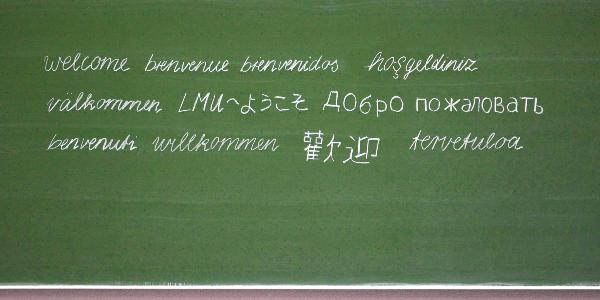 welcome bienvenue bienvenidos hoşgeldiniz
välkommen LMUへようこそ Добро пожаловать
benvenuti willkommen 歡迎 tervetuloa